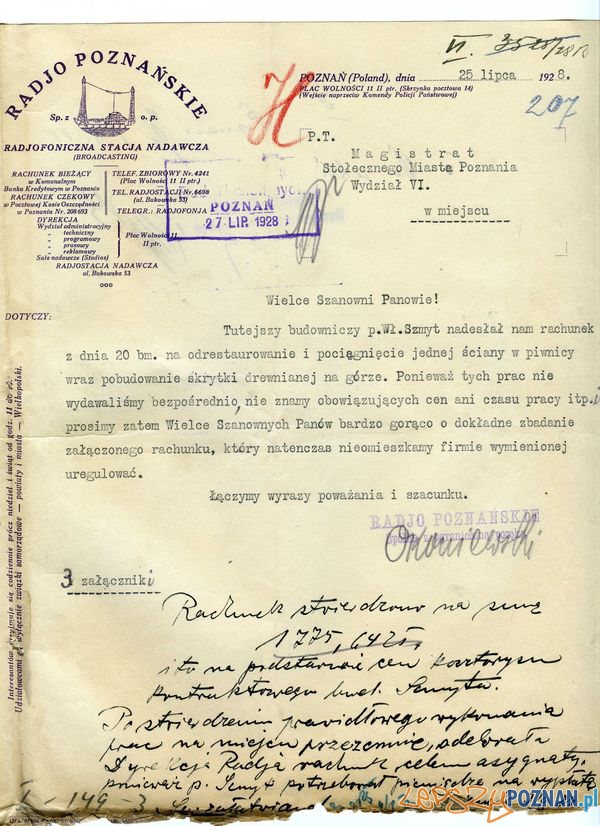 RADJO POZNAŃSKIE
Sp. z o. p.
RADJOFONICZNA STACJA NADAWCZA
(BROADCASTING)
RACHUNEK BIEŻĄCY
w Komunalnym
Banku Kredytowym w Poznaniu
RACHUNEK CZEKOWY
w Pocztowej Kasie Oszczędności
w Poznaniu Nr. 208693
DYREKCJA
Wydział administracyjny
" techniczny
" programowy
" prasowy
" reklamowy
Sale nadawcze (Studios)
Plac Wolności 11
II ptr.
RADJOSTACJA NADAWCZA
ul. Bukowska 53
TELEF. ZBIOROWY Nr. 4241
(Plac Wolności 11 II ptr.)
TEL. RADJOSTACJI Nr. 6608
(ul. Bukowska 53)
TELEGR.: RADJOFONJA
POZNAŃ
27 LIP. 1928
VI.
POZNAŃ (Poland), dnia 25 lipca 1928.
PLAC WOLNOŚCI 11 II ptr. (Skrzynka pocztowa 14)
(Wejście naprzeciw Komendy Policji Państwowej)
207
P.T.
Magistrat
Stołecznego Miasta Poznania
Wydział VI.
w miejscu
DOTYCZY:
Wielce Szanowni Panowie!
Tutejszy budowniczy p.Wł.Szmyt nadesłał nam rachunek
z dnia 20 bm. na odrestaurowanie i pociągnięcie jednej ściany w piwnicy
wraz pobudowanie skrytki drewnianej na górze. Ponieważ tych prac nie
wydawaliśmy bezpośrednio, nie znamy obowiązujących cen ani czasu pracy itp.i
prosimy zatem Wielce Szanownych Panów bardzo gorąco o dokładne zbadanie
załączonego rachunku, który natenczas nieomieszkamy firmie wymienionej
uregulować.
Łączymy wyrazy poważania i szacunku.
RADJO POZNAŃSKIE
3 załączniki
Rachunek stwierdzono na sumę
1775,64 zł.
i to na podstawie cen kosztorysu
kontraktowego bud. Szmyta.
Po stwierdzeniu prawidłowego wykonania
prac na miejscu przezemnie, odebrała
Dyrekcja Radja rachunek celem asygnaty,
ponieważ p. Szmyt potrzebował pieniądze na wypłatę
Interesantów przyjmuje się codziennie prócz niedziel i świąt od godz. 11 do
Udziałowcami są wyłącznie związki samorządowe — powiaty i miasta — Wielkopolski.
I - 149 - 3.
LepszyPOZNAN.pl